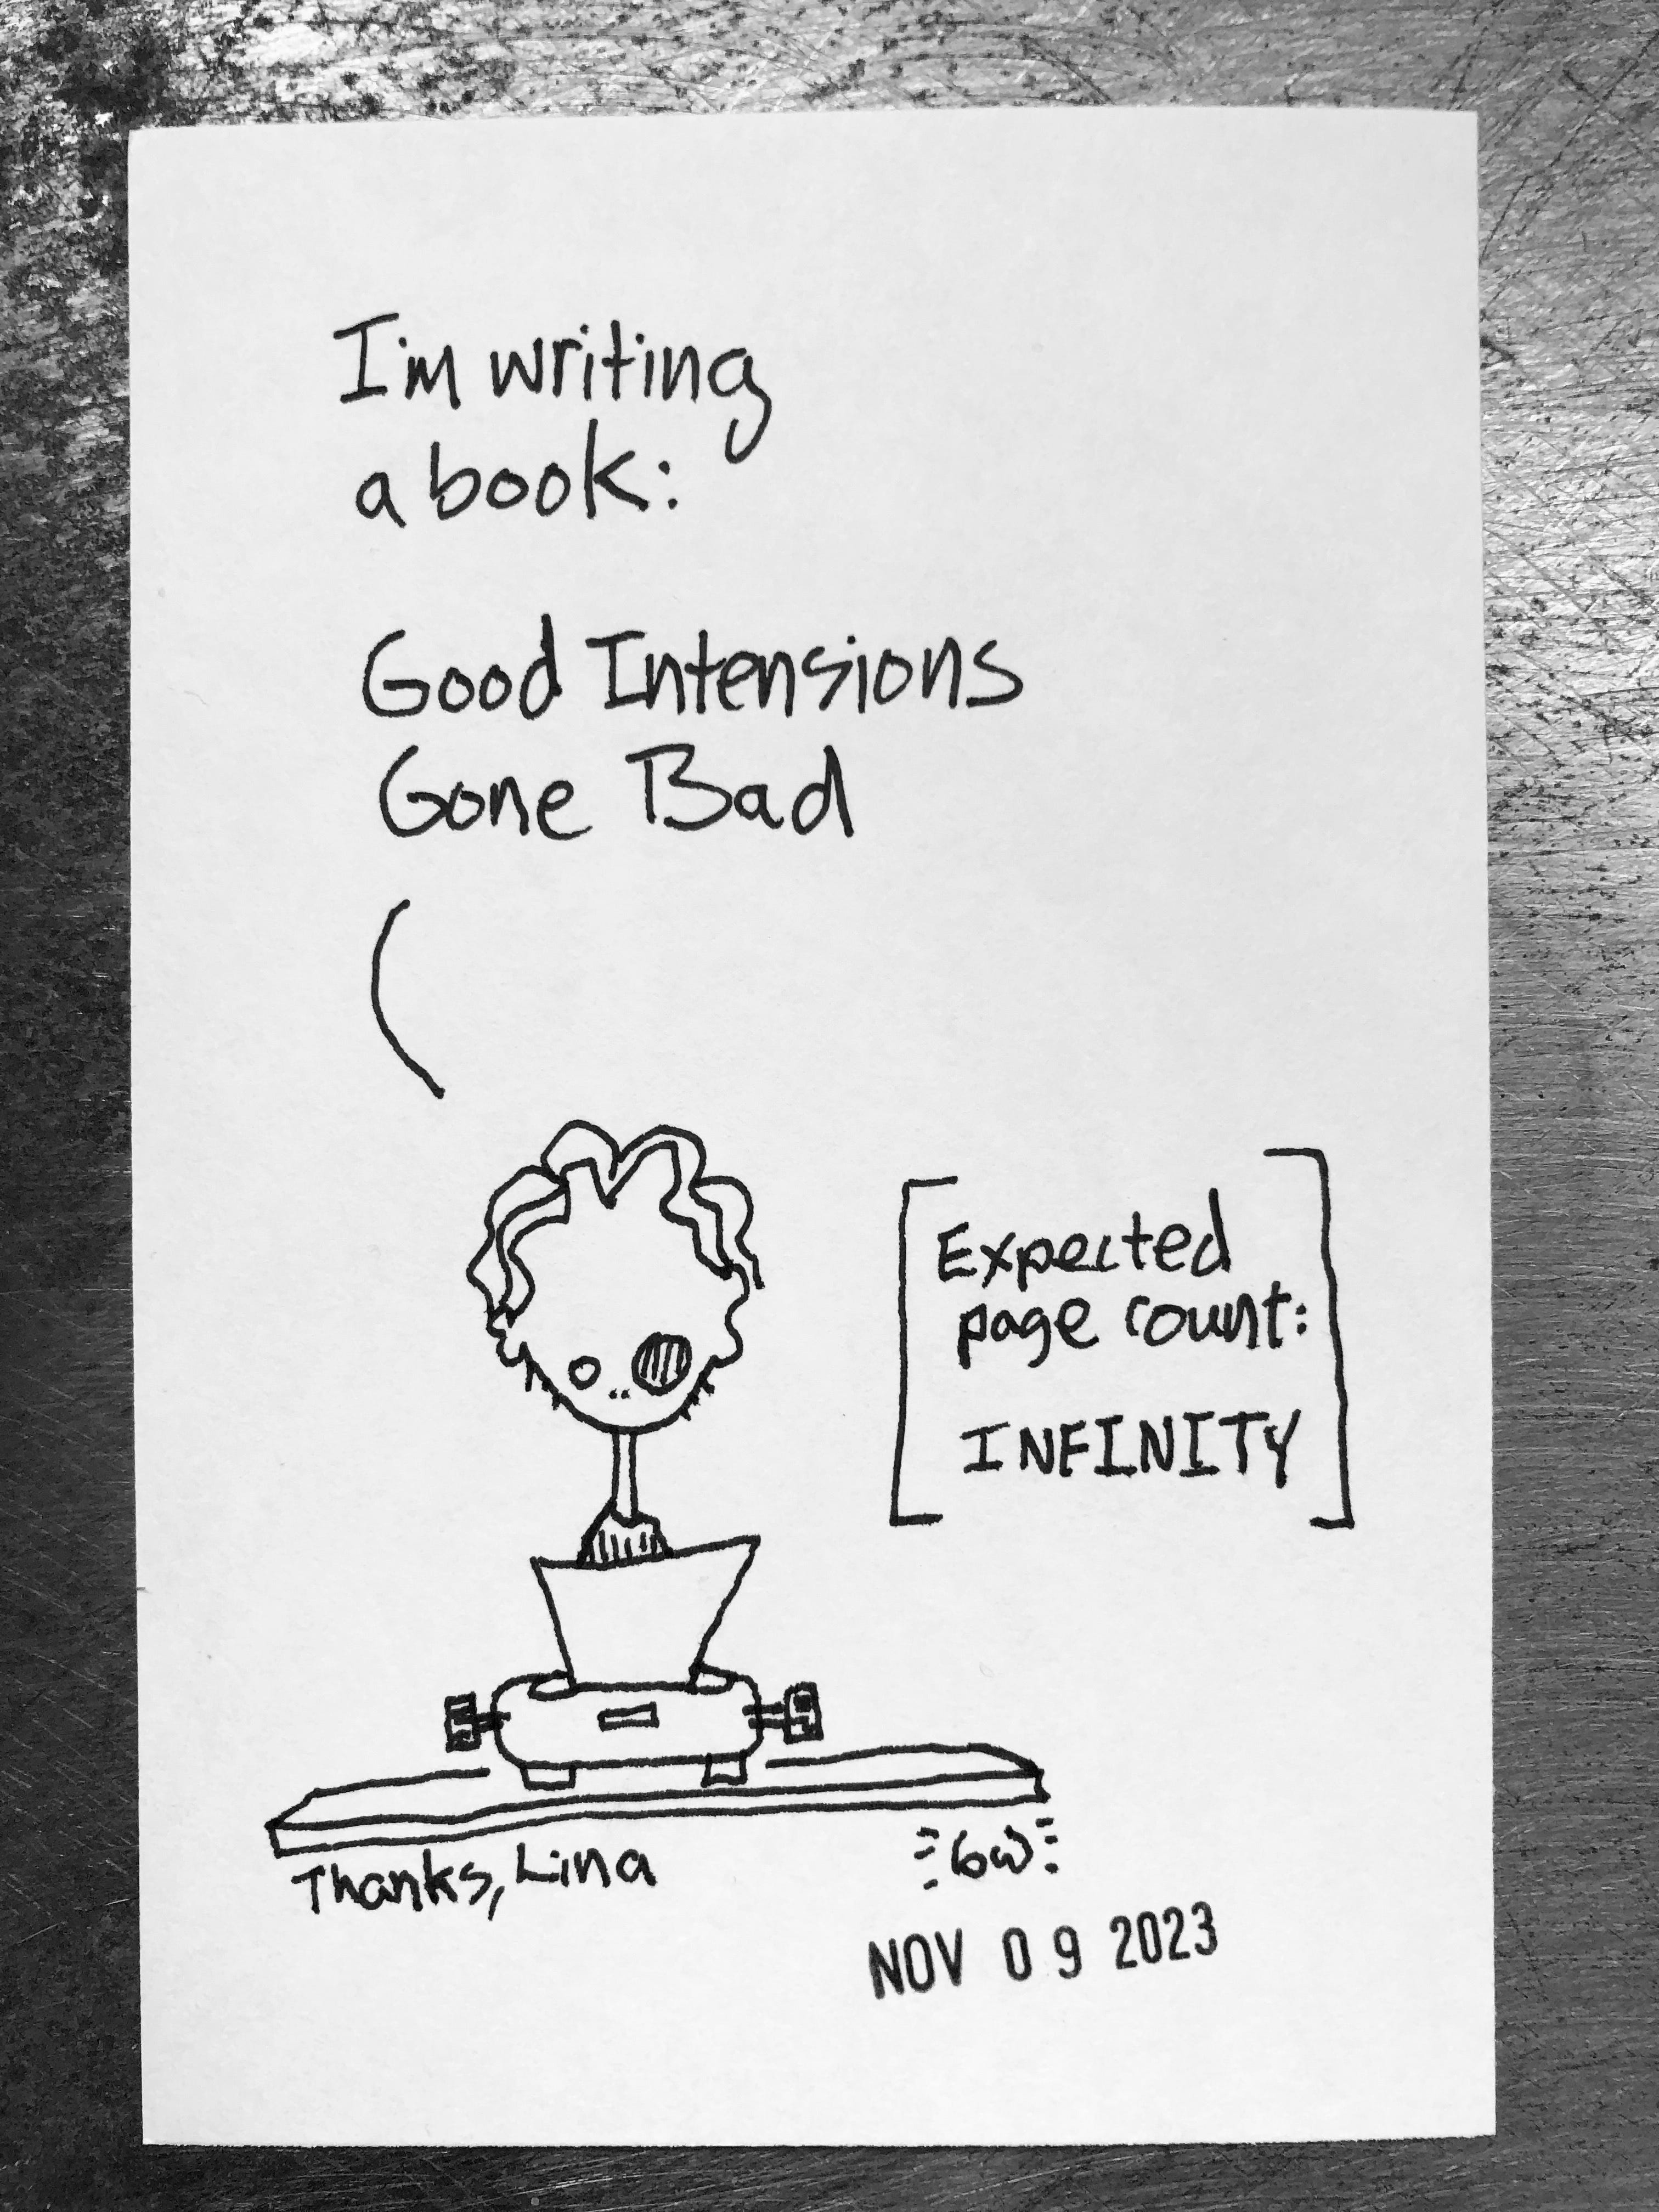 I'm writing
a book:
Good Intensions
Gone Bad
Expected
page count:
INFINITY
Thanks, Lina
NOV 09 2023